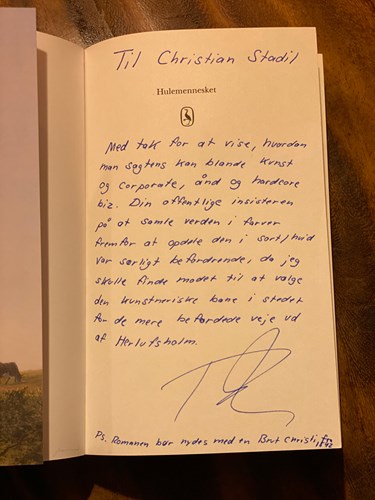 Til Christian Stadil
Hulemennesket
Med tak for at vise, hvordan
man sagtens kan blande kunst
og corporate, ånd og hardcore
biz. Din offentlige insisteren
på at samle verden i farver
fremfor at opdele den i sort/hvid
var særligt befordrende, da jeg
skulle finde modet til at vælge
den kunstneriske bane i stedet
for de mere befærdede veje ud
af Herlufsholm.
Ps. Romanen bør nydes med en Brut Christi, fra